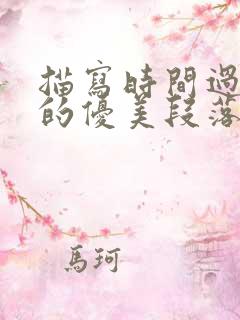 描寫時間過
的優美段落
馬珂